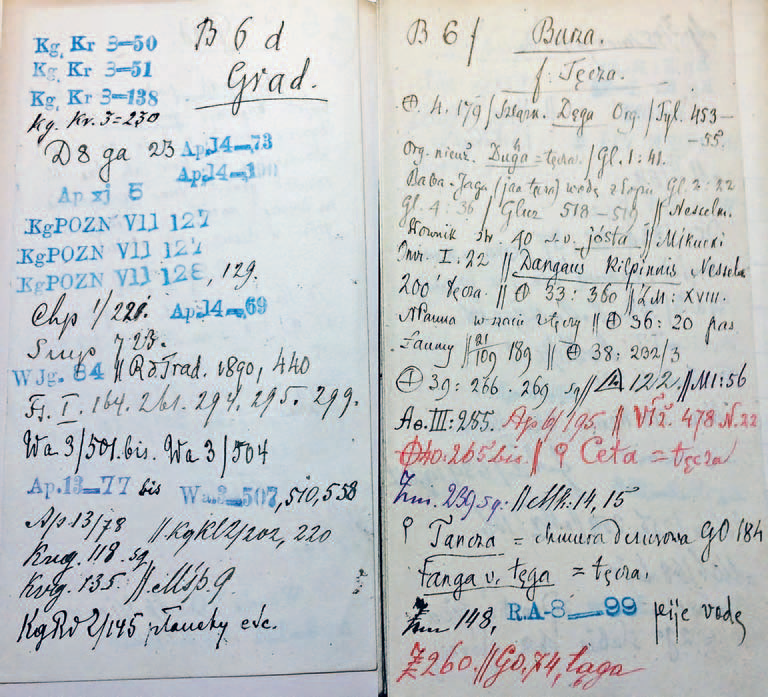 B 6 d
Kg. Kr 3=50
Kg. Kr 3=51
Grad.
Kg. Kr 3=138
Kg. Kr. 3=230
D8 ga 23 Ap.14=73
Ap.14=1
Ap xj 5
KgPOZN VII 127
KgPOZN VII 127
KgPOZN VII 128, 129.
Chp 1/221. Ap.14=69
723.
WJg. 84 || Trad. 1890, 440
I. 164. 261. 294. 295. 299.
Wa 3/501.bis. Wa 3/504
Ap.13=77 bis Wa.3=507, 510, 558
Ap.13/78 || KgKl2/202, 220
118 sq
135. || Msp 9
2/145 etc.
B 6 f Burza.
f: Tęcza.
⊕. 4. 179 / Szląsk. Dęga Org. / Tyl. 453—
—55.
Org. nieuż. Duga = tęcza. / Gl. 1: 41.
Baba-Jaga (jak tęcza) wodę z łopii Gl. 2: 22
Gl. 4: 36 / Gluz 518—519 || Nesselm.
Słownik 40 s.v. josta || Mikucki
I: 22 || Dangaus Kilpinnis Nesselm
200 tęcza. || ⊕ 33: 360 || ZM: XVIII.
NPanna w szacie z tęczy || ⊕ 36: 20 pas
Fauny || 189 || ⊕ 38: 232/3
⊕ 39: 266. 269 sq || 122. || M1: 56
III: 255. Ap 6/195 || 478 N. 22
⊕ 40: 265 bis. || ♀ Ceta = tęcza
239 sq. || Mk: 14, 15
♀ Tancza = chmura deszczowa GO 184
tanga v. tęga = tęcza.
148, R.A-8=99 pije wodę
Ż 260. || Go. 74, łąga